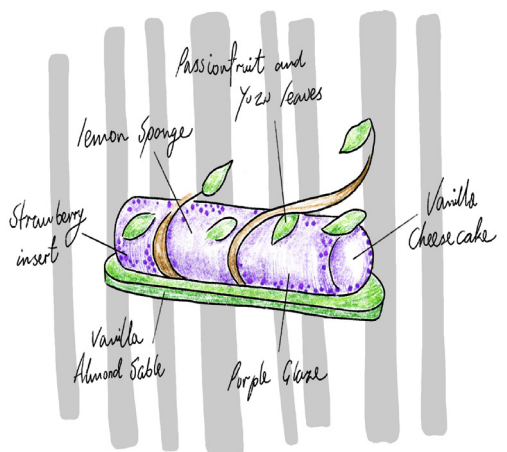 Passionfruit and
Yuzu leaves
lemon Sponge
Strawberry
insert
Vanilla
Cheesecake
Vanilla
Almond Sable
Purple Glaze